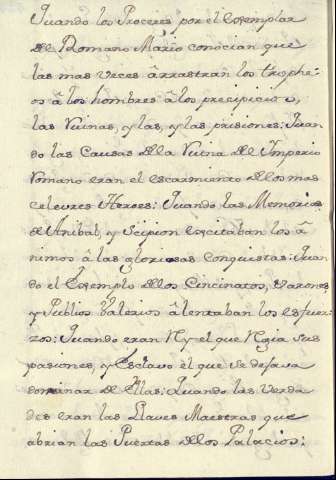 Quando los Proceres por el Exemplar
del Romano Mario conocian que
las mas veces ârrastran los trophe-
os â los hombres â los precipicios,
las Ruinas, y las, y las prisiones: Quan
do las Causas della Ruina del Imperio
Romano eran el escarmiento dellos mas
celevres Heroes: Quando las Memorias
de Anibal, y Scipion excitaban los â
nimos â las gloriosas conquistas: Quan
do el Exemplo dellos Cincinatos, Varones
y Publios Valerios âlentaban los esfuer-
zos: Quando eran Rey el que Regia sus
pasiones, y Esclavo êl que se dejava
dominar de Ellas: Quando las Verda
des eran las Llaves Maestras que
abrian las Puertas dellos Palacios: